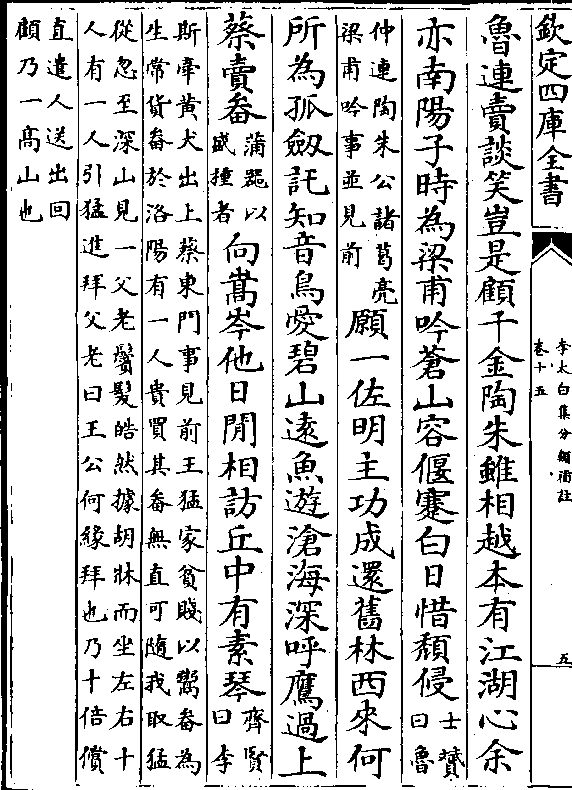 欽定四庫全書
李太白集分類補註
卷十五
五
魯連賣談笑豈是顧千金陶朱雖相越本有江湖心余
亦南陽子時為梁甫吟蒼山容偃蹇白日惜頹侵士贇曰魯
仲連陶朱公諸葛亮
梁甫吟事並見前
願一佐明主功成還舊林西來何
所為孤劔託知音鳥愛碧山遠魚遊滄海深呼鷹過上
蔡賣畚蒲器以盛種者向嵩岑他日閒相訪丘中有素琴齊賢曰李
斯牽黄犬出上蔡東門事見前王猛家貧賤以鬻畚為
生常貨畚於洛陽有一人貴買其畚無直可隨我取猛
從忽至深山見一父老鬢髮皓然據胡牀而坐左右十
人有一人引猛進拜父老曰王公何緣拜也乃十倍償
直遣人送出回
顧乃一高山也